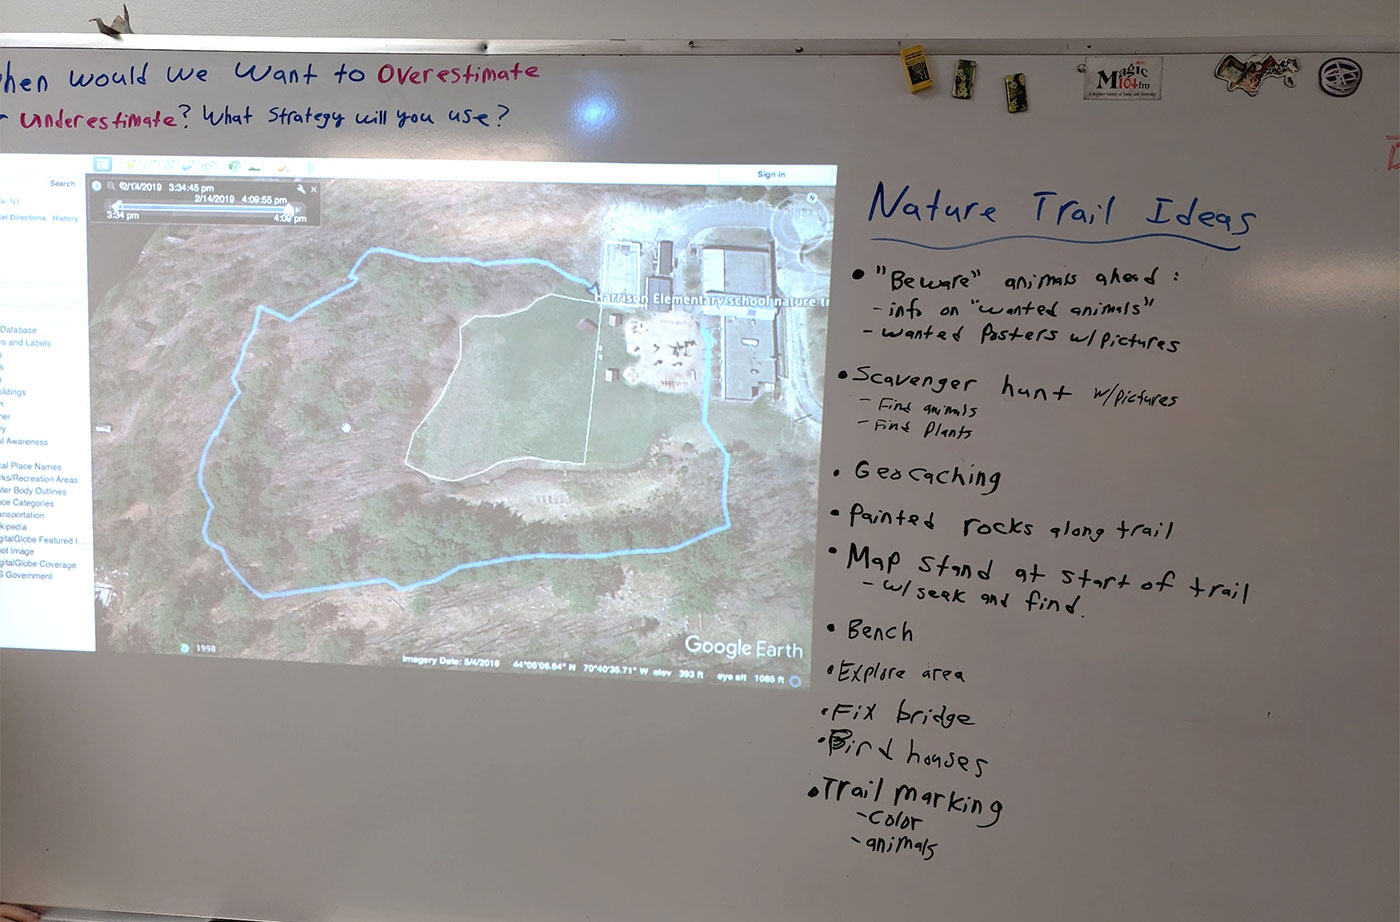 hen would we want to Overestimate
underestimate? What strategy will you use?
Magic
104fm
A Brighter Variety of Today and Yesterday
Search
Sign in
NY
Directions History
2/14/2019 3:34:45 pm
2/14/2019 4:09:55 pm
3:34 pm
4:09 pm
Harrison Elementary school nature tr
Database
s and Labels
ildings
Awareness
al Place Names
ks/Recreation Areas
ter Body Outlines
ce Categories
ansportation
kipedia
gitalGlobe Featured I...
ot Image
gitalGlobe Coverage
S Government
1998
Google Earth
Imagery Date: 5/4/2018 44°05'06.64" N 70°40'35.71" W elev 393 ft eye alt 1085 ft
Nature Trail Ideas
• "Beware" animals ahead:
- info on "wanted animals"
- wanted Posters w/pictures
• Scavenger hunt w/pictures
- Find animals
- Find Plants
• Geocaching
• Painted rocks along trail
• Map stand at start of trail
- w/ seek and find.
• Bench
• Explore area
• Fix bridge
• Bird houses
• Trail marking
- color
- animals